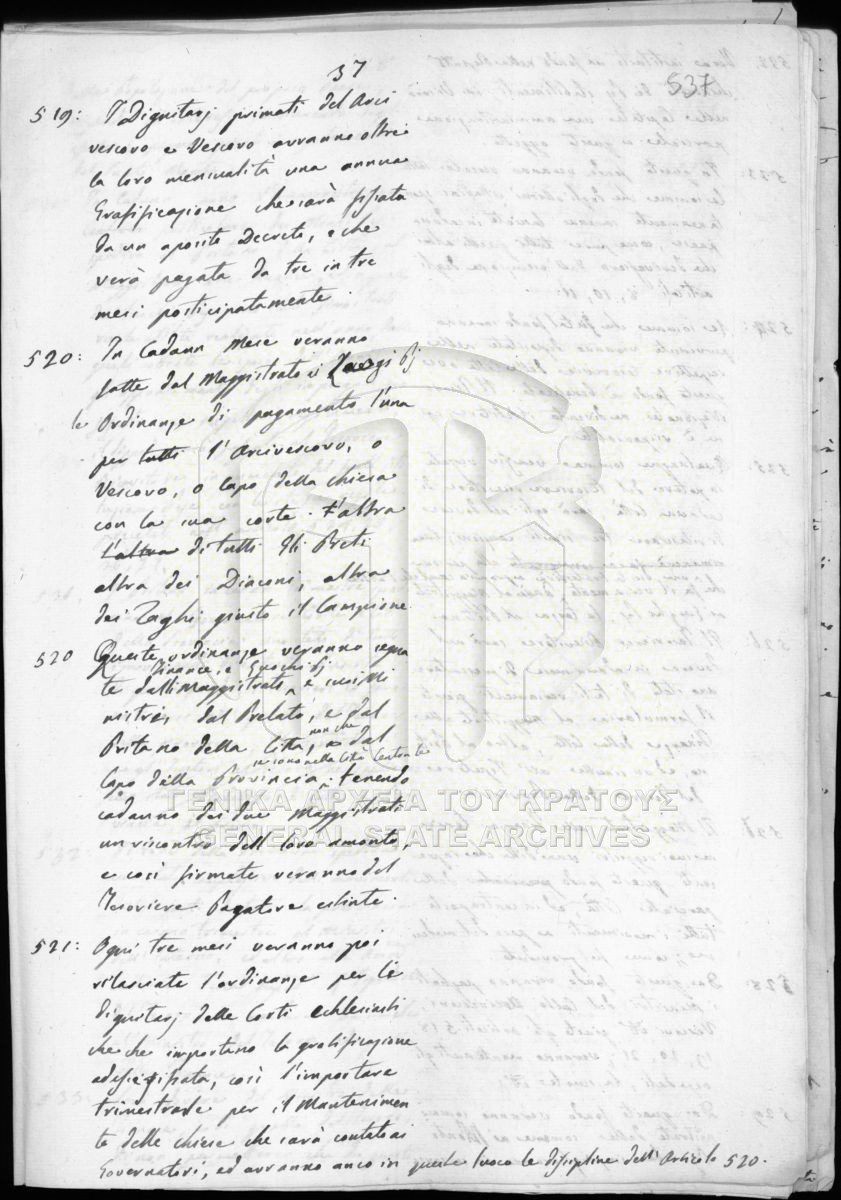 37
537
519: I Dignitarj primati del Arci
vescovo e Vescovo avranno oltre
la loro mensualità una annua
Gratificazione che sarà fissata
da un aposito Decreto, e che
verà pagata da tre in tre
mesi posticipatamente.
520: In Cadaun Mese veranno
fatte dal Magistrato ai
le Ordinanze di pagamento l'una
per tutti l'Arcivescovo, o
Vescovo, o Capo della chiesa
con la sua corte. L'altra
L'altra di tutti Gli Preti
altra dei Diaconi, altra
dei Zaghi giusto il Campione.
520 Queste ordinanze veranno segna
Finance, e
te dalli Maggistrati e suoi Mi
nistri, dal Prelato, e dal
non che
Pritano della Città, dal
se sono nella Cità Centrale
Capo della Provincia. tenendo
cadauno dei due Maggistrati
un riscontro dell loro amonto,
e così firmate veranno del
Tesoriere Pagatore estinte.
521: Ogni tre mesi veranno poi
rilasciate l'ordinanze per li
dignitarj delle Corti echlesiasti
che che importano la gratificazione
fissata, così l'importare
trimestrade per il Mantenimen
to delle chiese che sarà contato ai
Governatori, ed avranno anco in queste luoco le discipline dell' Articolo 520.
ΓΕΝΙΚΑ ΑΡΧΕΙΑ ΤΟΥ ΚΡΑΤΟΥΣ
GENERAL STATE ARCHIVES